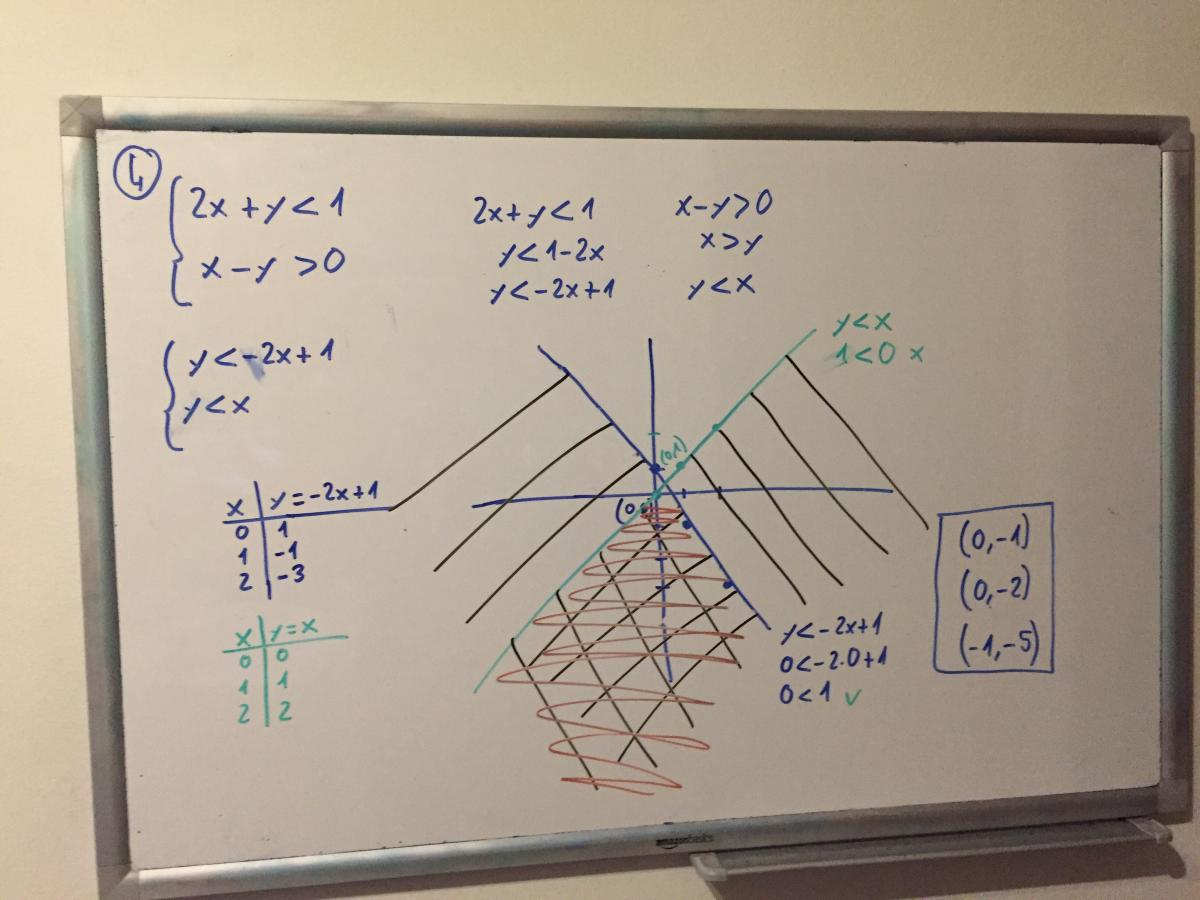 4
2x + y < 1
x - y > 0
2x + y < 1
y < 1 - 2x
y < -2x + 1
x - y > 0
x > y
y < x
y < -2x + 1
y < x
y < x
1 < 0 x
x | y = -2x + 1
0 | 1
1 | -1
2 | -3
x | y = x
0 | 0
1 | 1
2 | 2
(0,1)
(0
y < -2x + 1
0 < -2.0 + 1
0 < 1 ✓
(0,-1)
(0,-2)
(-1,-5)
amazonbasics